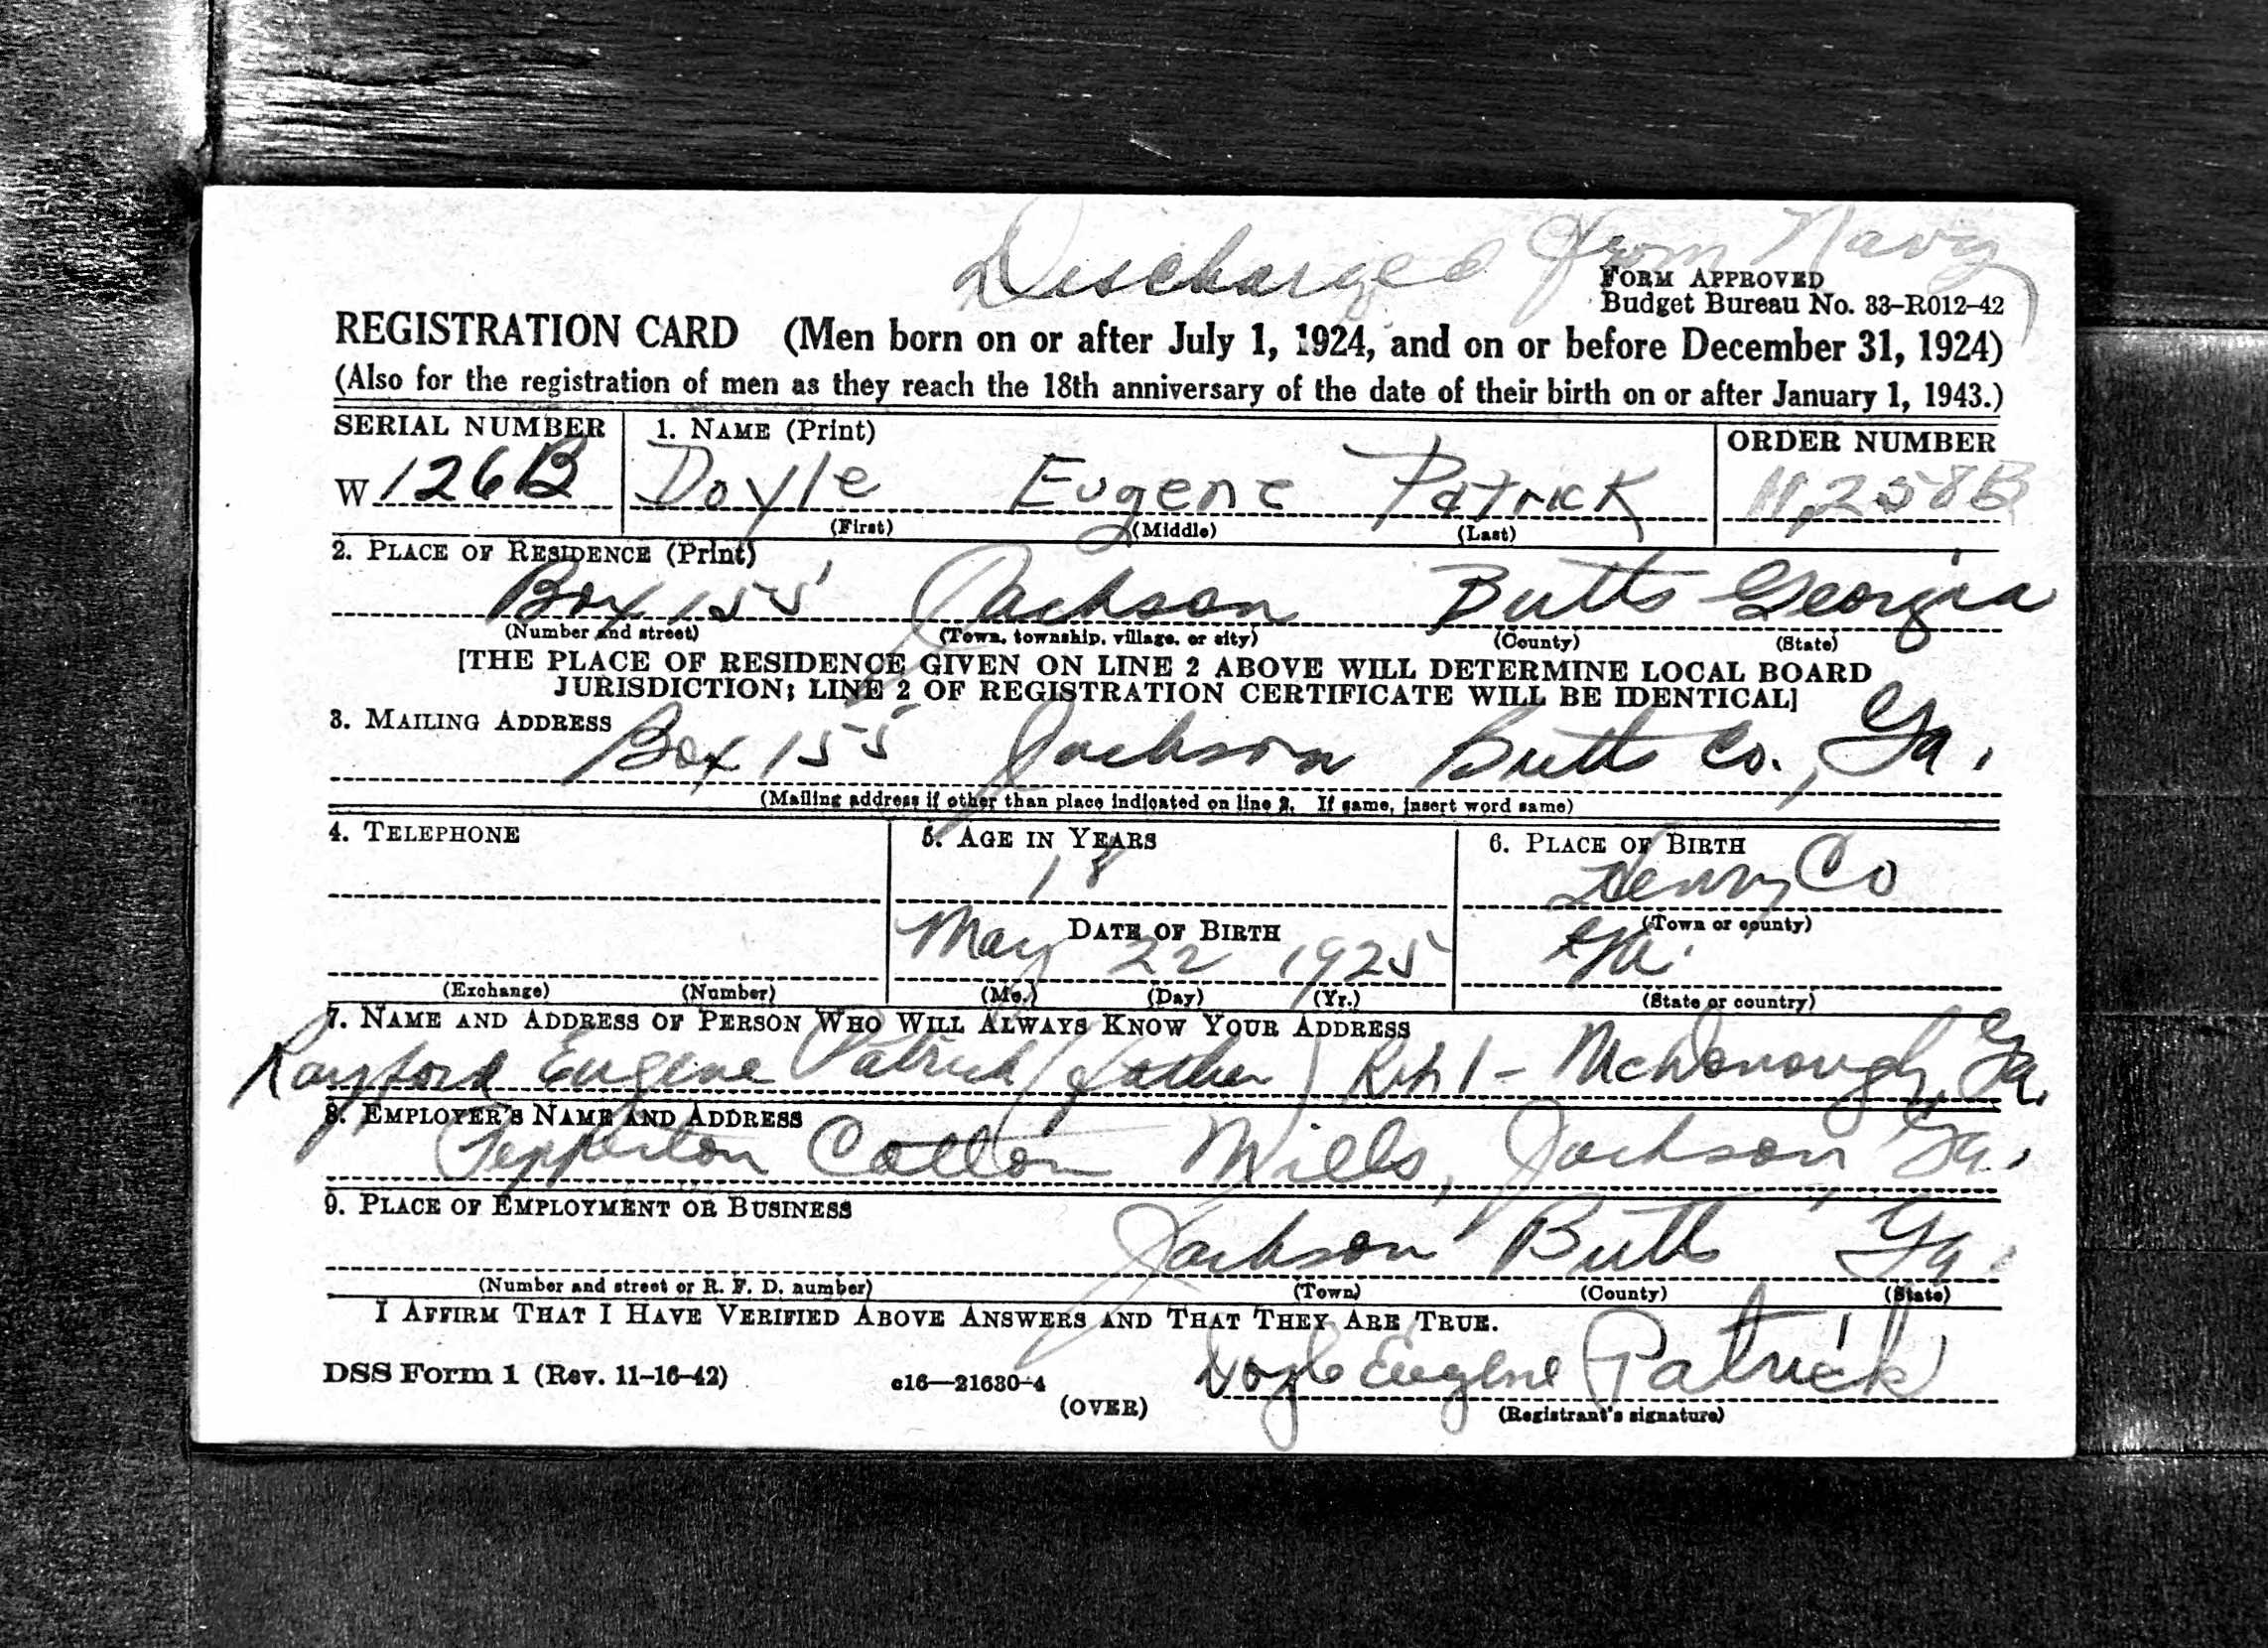 Discharged from Navy
FORM APPROVED
Budget Bureau No. 33-R012-42
REGISTRATION CARD (Men born on or after July 1, 1924, and on or before December 31, 1924)
(Also for the registration of men as they reach the 18th anniversary of the date of their birth on or after January 1, 1943.)
SERIAL NUMBER 1. NAME (Print) ORDER NUMBER
W 126B Doyle Eugene Patrick 11,258B
(First) (Middle) (Last)
2. PLACE OF RESIDENCE (Print)
Box 155 Jackson Butts Georgia
(Number and street) (Town, township, village, or city) (County) (State)
[THE PLACE OF RESIDENCE GIVEN ON LINE 2 ABOVE WILL DETERMINE LOCAL BOARD
JURISDICTION; LINE 2 OF REGISTRATION CERTIFICATE WILL BE IDENTICAL]
3. MAILING ADDRESS
Box 155 Jackson Butts Co., Ga.
(Mailing address if other than place indicated on line 2. If same, insert word same)
4. TELEPHONE 5. AGE IN YEARS 6. PLACE OF BIRTH
18 Henry Co
DATE OF BIRTH (Town or county)
May 22 1925 Ga.
(Exchange) (Number) (Mo.) (Day) (Yr.) (State or country)
7. NAME AND ADDRESS OF PERSON WHO WILL ALWAYS KNOW YOUR ADDRESS
Rayford Eugene Patrick (father) Rt 1 - McDonough, Ga.
8. EMPLOYER'S NAME AND ADDRESS
Pepperton Cotton Mills, Jackson, Ga.
9. PLACE OF EMPLOYMENT OR BUSINESS
Jackson Butts Ga.
(Number and street or R. F. D. number) (Town) (County) (State)
I AFFIRM THAT I HAVE VERIFIED ABOVE ANSWERS AND THAT THEY ARE TRUE.
DSS Form 1 (Rev. 11-16-42) c16—21630-4 Doyle Eugene Patrick
(OVER) (Registrant's signature)